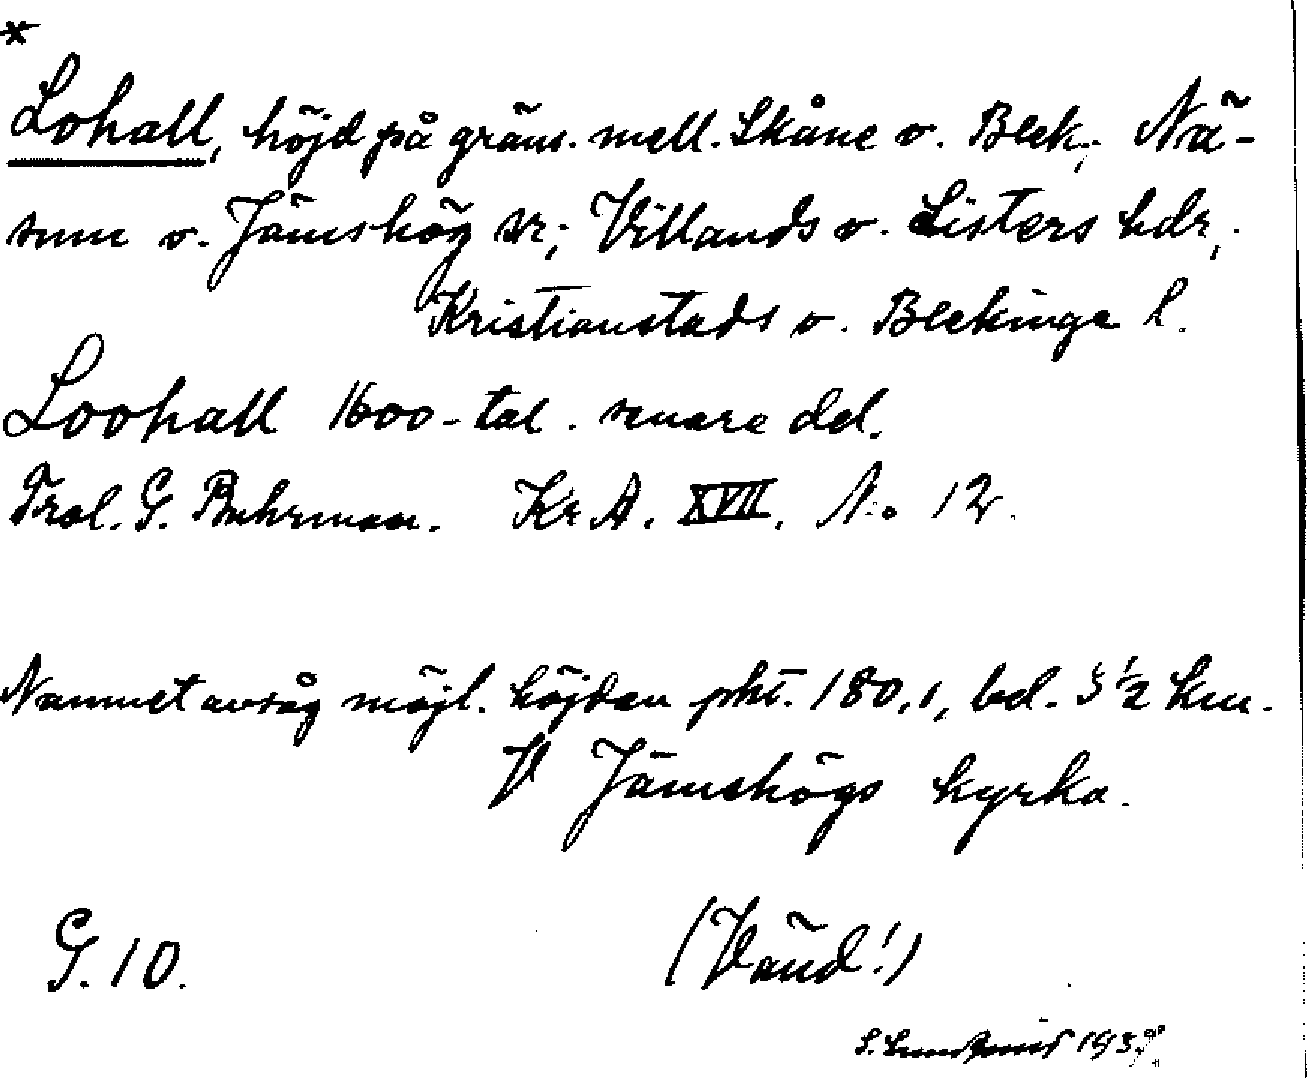 *
Lohall, höjd på gräns. mell. Skåne o. Blek., Nä-
sum o. Jämshög sr; Villands o. Listers hdr,
Kristianstads o. Blekinge l.
Loohall 1600-tal. senare del.
Trol. G. Buhrman. Kr A. XVII. No 12.
Namnet avsåg möjl. höjden pkt. 180,1, bel. 3 1/2 km.
V Jämshögs kyrka.
G. 10. (Vänd!)
S. Lundqvist